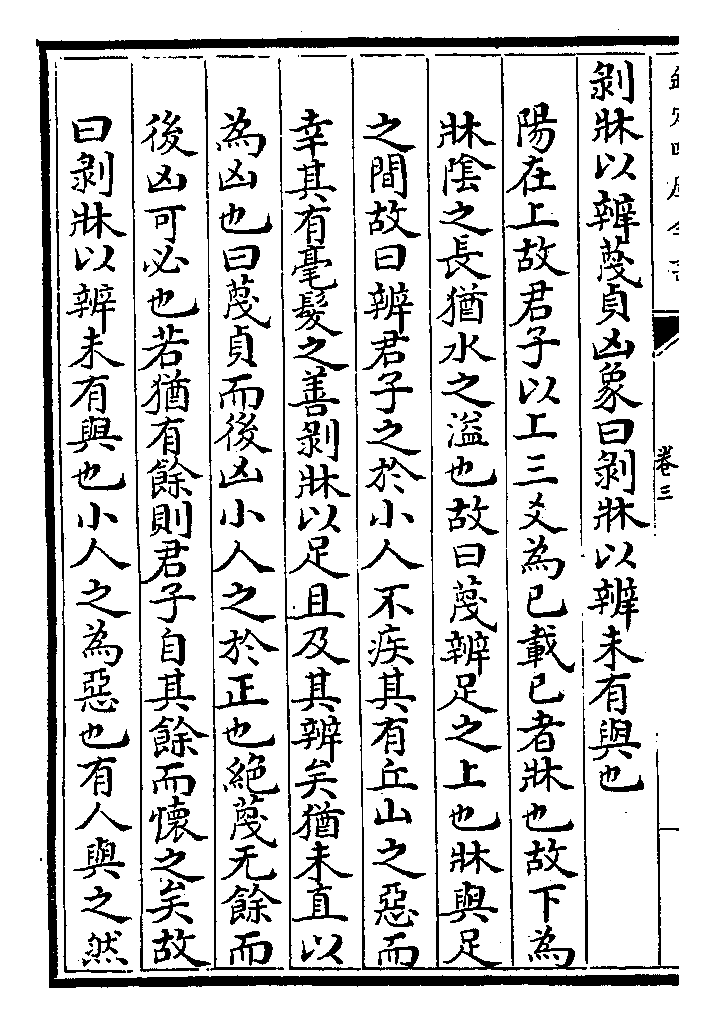 卷三
剝牀以辨蔑貞凶象曰剝牀以辨未有與也
陽在上故君子以上三爻為已載已者牀也故下為
牀陰之長猶水之溢也故曰蔑辨足之上也牀與足
之間故曰辨君子之於小人不疾其有丘山之惡而
幸其有毫髮之善剝牀以足且及其辨矣猶未直以
為凶也曰蔑貞而後凶小人之於正也絶蔑无餘而
後凶可必也若猶有餘則君子自其餘而懷之矣故
曰剝牀以辨未有與也小人之為惡也有人與之然